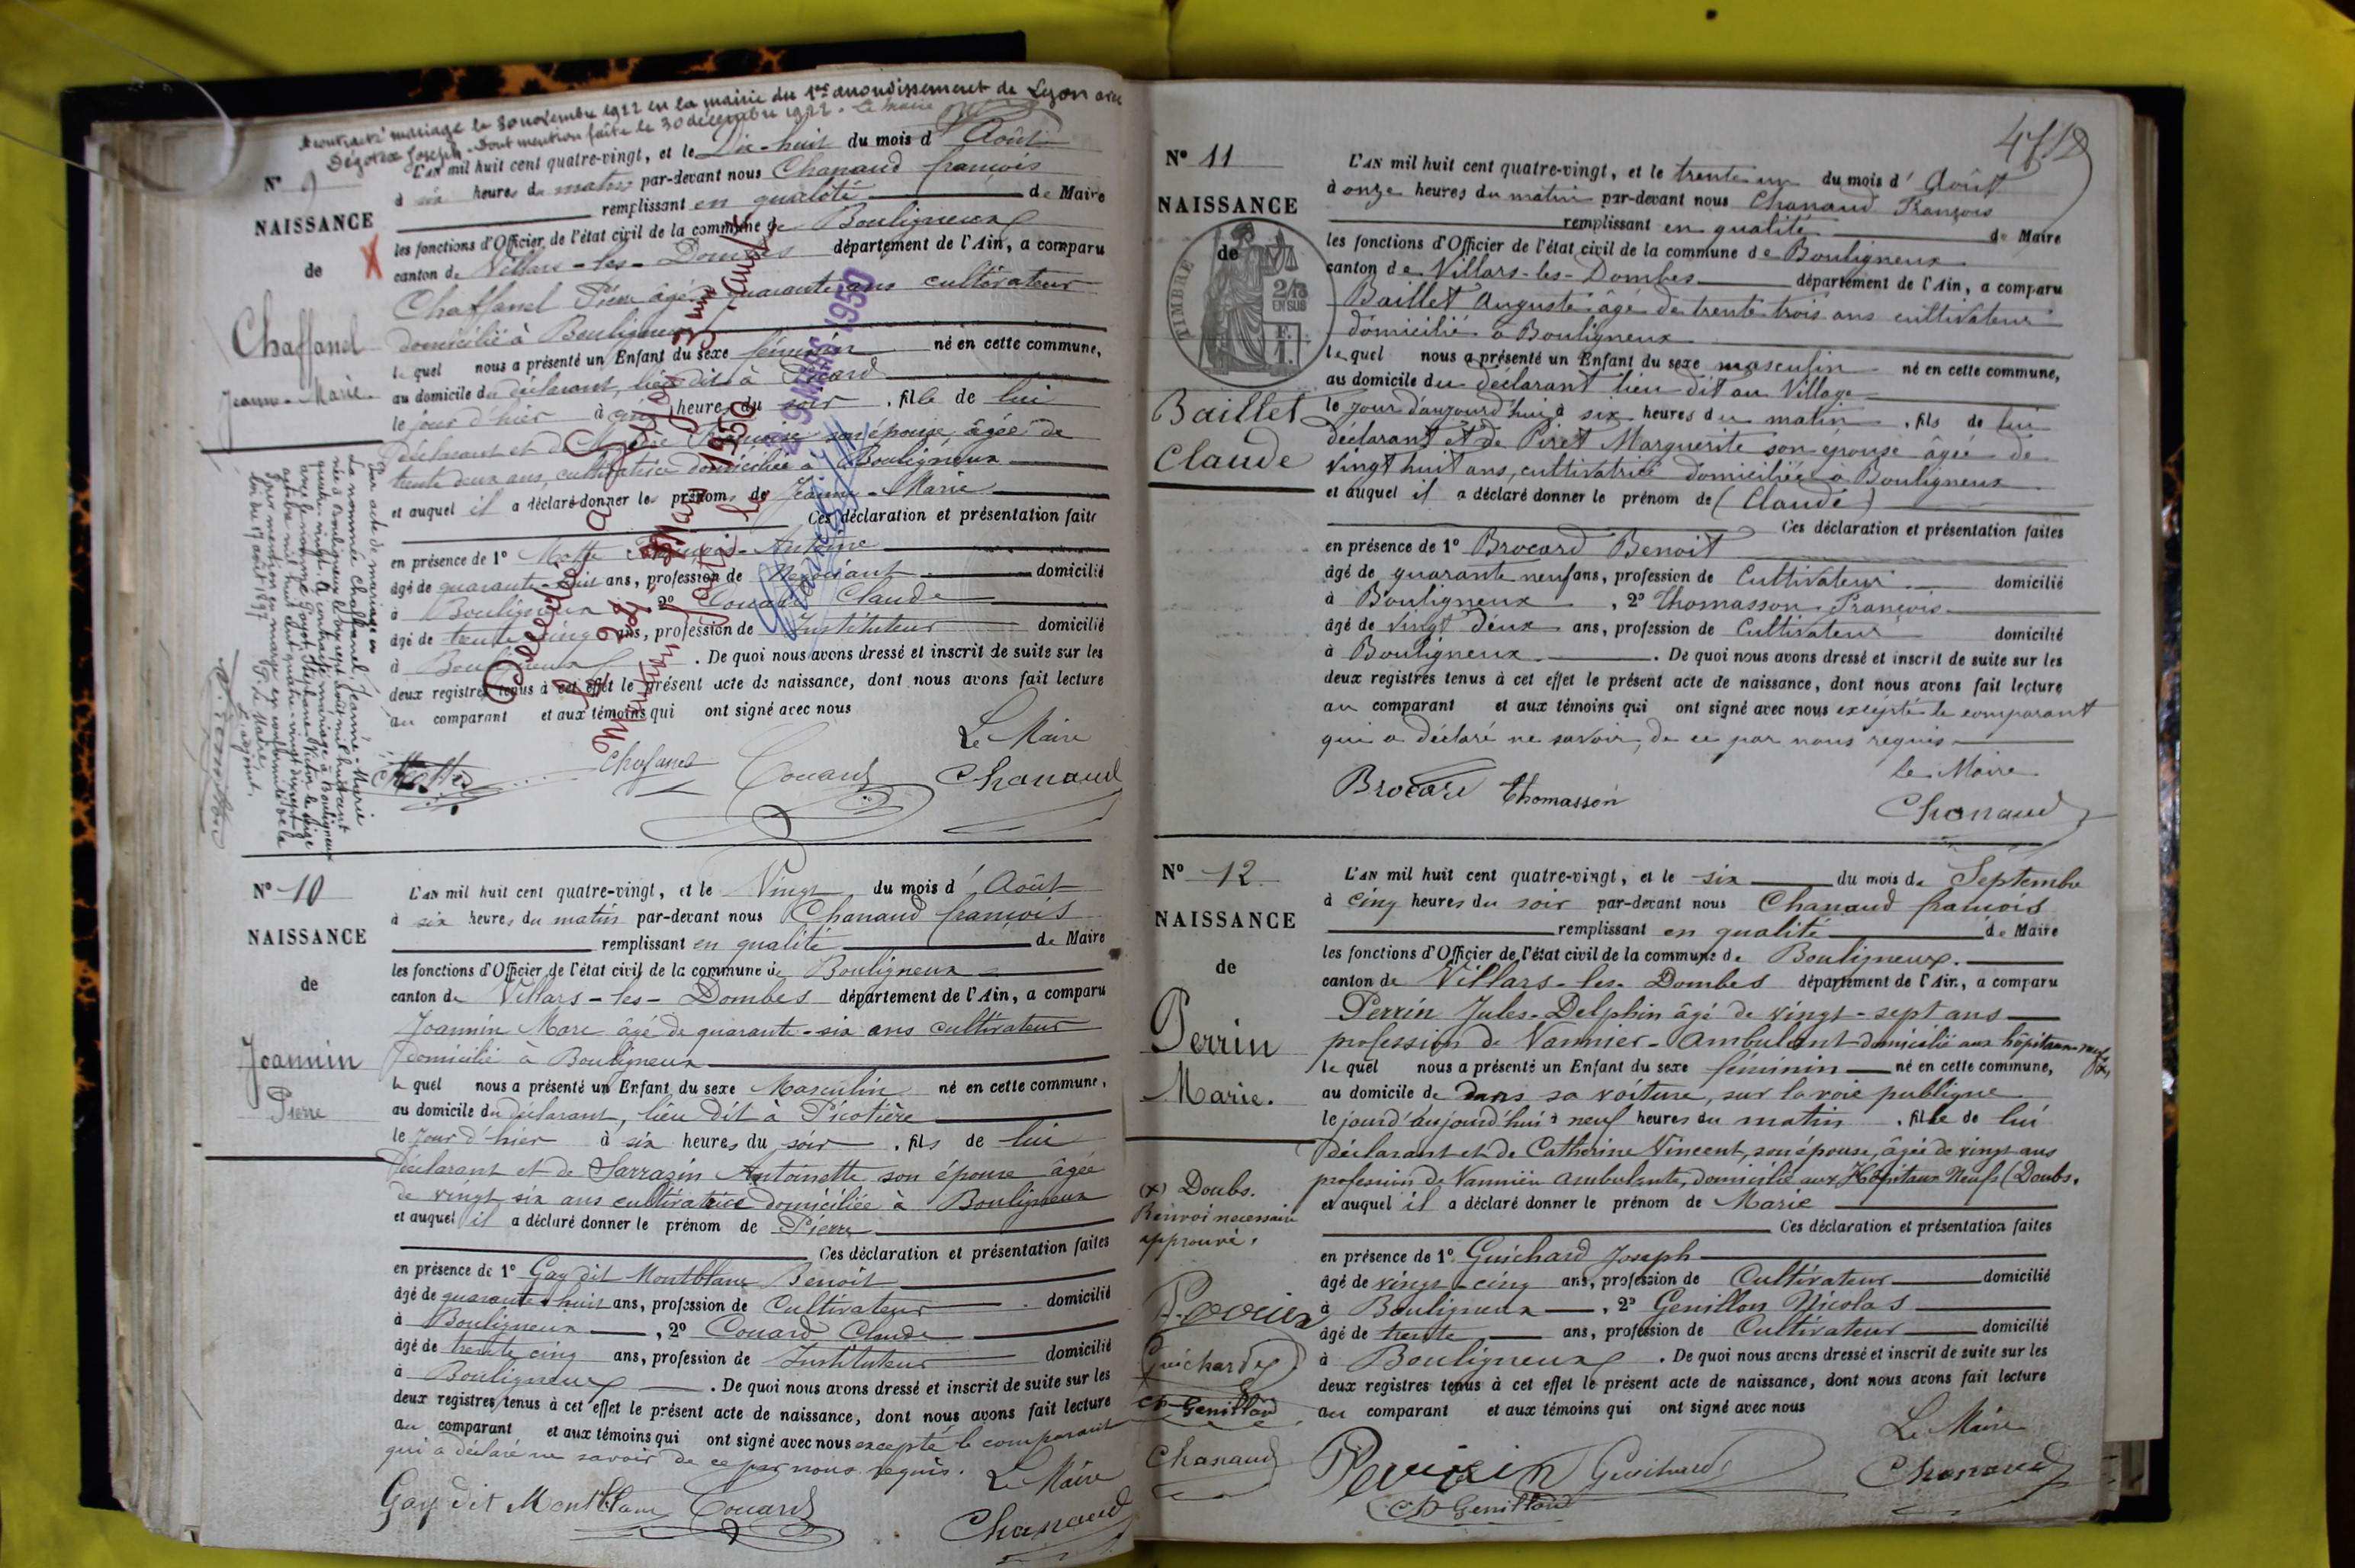 a contracté mariage le 30 novembre 1922 en la mairie du 1er arrondissement de Lyon avec
Joseph. Dont mention faite le 30 décembre 1922. Le Maire
N° 9
NAISSANCE
de
X
Chaffanel
Jeanne-Marie
L'AN mil huit cent quatre-vingt, et le Dix-huit du mois d'Août
à six heures du matin par-devant nous Chanaud françois
remplissant en qualité de Maire
les fonctions d'Officier de l'état civil de la commune de Bouligneux
canton de Villars-les-Dombes département de l'Ain, a comparu
Chaffanel Pierre âgé quarante ans cultivateur
domicilié à Bouligneux
lequel nous a présenté un Enfant du sexe féminin né en cette commune,
au domicile du déclarant, lieu dit à
le jour d'hier à cinq heures du soir, fille de lui
déclarant et de son épouse, âgée de
trente deux ans, cultivatrice domiciliée à Bouligneux
et auquel il a déclaré donner les prénoms de Jeanne-Marie
Ces déclaration et présentation faites
en présence de 1° Motte François-Antoine
âgé de quarante-huit ans, profession de Négociant domicilié
à Bouligneux, 2° Couard Claude
âgé de trente cinq ans, profession de Instituteur domicilié
à Bouligneux. De quoi nous avons dressé et inscrit de suite sur les
deux registres tenus à cet effet le présent acte de naissance, dont nous avons fait lecture
au comparant et aux témoins qui ont signé avec nous
Le Maire
Motte Chafanel Couard Chanaud
Par acte de mariage en
La nommée Chaffanel, Jeanne-Marie
née à Bouligneux le
quatre-vingt. A contracté mariage à Bouligneux
avec le nommé
mil huit cent quatre-vingt dix-sept
pour mention en marge en conformité de la
loi du 17 août 1897
P. Le Maire
L'adjoint,
Décédée à
Mention faite le
29 MARS 1950
N° 10
NAISSANCE
de
Joannin
Pierre
L'AN mil huit cent quatre-vingt, et le Vingt du mois d'Août
à six heures du matin par-devant nous Chanaud françois
remplissant en qualité de Maire
les fonctions d'Officier de l'état civil de la commune de Bouligneux
canton de Villars-les-Dombes département de l'Ain, a comparu
Joannin Marc âgé de quarante-six ans cultivateur
domicilié à Bouligneux
lequel nous a présenté un Enfant du sexe Masculin né en cette commune,
au domicile du déclarant, lieu dit à Picotière
le jour d'hier à six heures du soir, fils de lui
déclarant et de Sarrazin Antoinette son épouse âgée
de vingt six ans cultivatrice domiciliée à Bouligneux
et auquel il a déclaré donner le prénom de Pierre
Ces déclaration et présentation faites
en présence de 1° Gay dit Montblanc Benoit
âgé de quarante huit ans, profession de Cultivateur domicilié
à Bouligneux, 2° Couard Claude
âgé de trente cinq ans, profession de Instituteur domicilié
à Bouligneux. De quoi nous avons dressé et inscrit de suite sur les
deux registres tenus à cet effet le présent acte de naissance, dont nous avons fait lecture
au comparant et aux témoins qui ont signé avec nous excepté le comparant
qui a déclaré ne savoir de ce par nous requis.
Le Maire
Gay dit Montblanc Couard Chanaud
N° 11
NAISSANCE
de
TIMBRE
2/10
EN SUS
Baillet
Claude
L'AN mil huit cent quatre-vingt, et le trente un du mois d'Août
à onze heures du matin par-devant nous Chanaud François
remplissant en qualité de Maire
les fonctions d'Officier de l'état civil de la commune de Bouligneux
canton de Villars-les-Dombes département de l'Ain, a comparu
Baillet Auguste âgé de trente trois ans cultivateur
domicilié à Bouligneux
lequel nous a présenté un Enfant du sexe masculin né en cette commune,
au domicile du déclarant lieu dit au Village
le jour d'aujourd'hui à six heures du matin, fils de lui
déclarant et de Piret Marguerite son épouse âgée de
vingt huit ans, cultivatrice domiciliée à Bouligneux
et auquel il a déclaré donner le prénom de (Claude)
Ces déclaration et présentation faites
en présence de 1° Brocard Benoit
âgé de quarante neuf ans, profession de Cultivateur domicilié
à Bouligneux, 2° Thomasson François
âgé de vingt deux ans, profession de Cultivateur domicilié
à Bouligneux. De quoi nous avons dressé et inscrit de suite sur les
deux registres tenus à cet effet le présent acte de naissance, dont nous avons fait lecture
au comparant et aux témoins qui ont signé avec nous excepté le comparant
qui a déclaré ne savoir, de ce par nous requis
le Maire
Brocard Thomasson Chanaud
N° 12
NAISSANCE
de
Perrin
Marie.
L'AN mil huit cent quatre-vingt, et le six du mois de Septembre
à cinq heures du soir par-devant nous Chanaud françois
remplissant en qualité de Maire
les fonctions d'Officier de l'état civil de la commune de Bouligneux.
canton de Villars-les-Dombes département de l'Ain, a comparu
Perrin Jules-Delphin âgé de vingt-sept ans
profession de Vannier-Ambulant domicilié aux hôpitaux-neufs (x)
lequel nous a présenté un Enfant du sexe féminin né en cette commune,
au domicile de dans sa voiture, sur la voie publique
le jour d'aujourd'hui à neuf heures du matin, fille de lui
déclarant et de Catherine Vincent, son épouse, âgée de vingt ans
profession de Vannière ambulante, domiciliée aux Hôpitaux Neufs (Doubs.
et auquel il a déclaré donner le prénom de Marie
Ces déclaration et présentation faites
en présence de 1° Guichard Joseph
âgé de vingt-cinq ans, profession de Cultivateur domicilié
à Bouligneux, 2° Genillon Nicolas
âgé de trente ans, profession de Cultivateur domicilié
à Bouligneux. De quoi nous avons dressé et inscrit de suite sur les
deux registres tenus à cet effet le présent acte de naissance, dont nous avons fait lecture
au comparant et aux témoins qui ont signé avec nous
Le Maire
Perrin Guichard Chanaud
Genillon
(x) Doubs.
Renvoi necessaire
approuvé.
Perrin
Guichard
Genillon
Chanaud